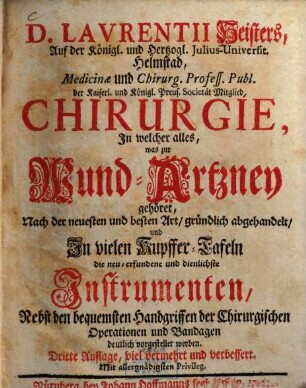 D. LAVRENTII Heisters,
Auf der Königl. und Hertzogl. Julius-Universit.
Helmstad,
Medicinæ und Chirurg. Profess. Publ.
der Kaiserl. und Königl. Preus. Societät Mitglied,
CHIRURGIE,
In welcher alles,
was zur
Wund-Artzney
gehöret,
Nach der neuesten und besten Art/ gründlich abgehandelt/
und
In vielen Kupffer-Tafeln
die neu-erfundene und dienlichste
Instrumenten/
Nebst den bequemsten Handgriffen der Chirurgischen
Operationen und Bandagen
deutlich vorgestellet werden.
Dritte Auflage, viel vermehrt und verbessert.
Mit allergnädigsten Privileg.
Nürnberg, bey Johann Hoffmanns seel.